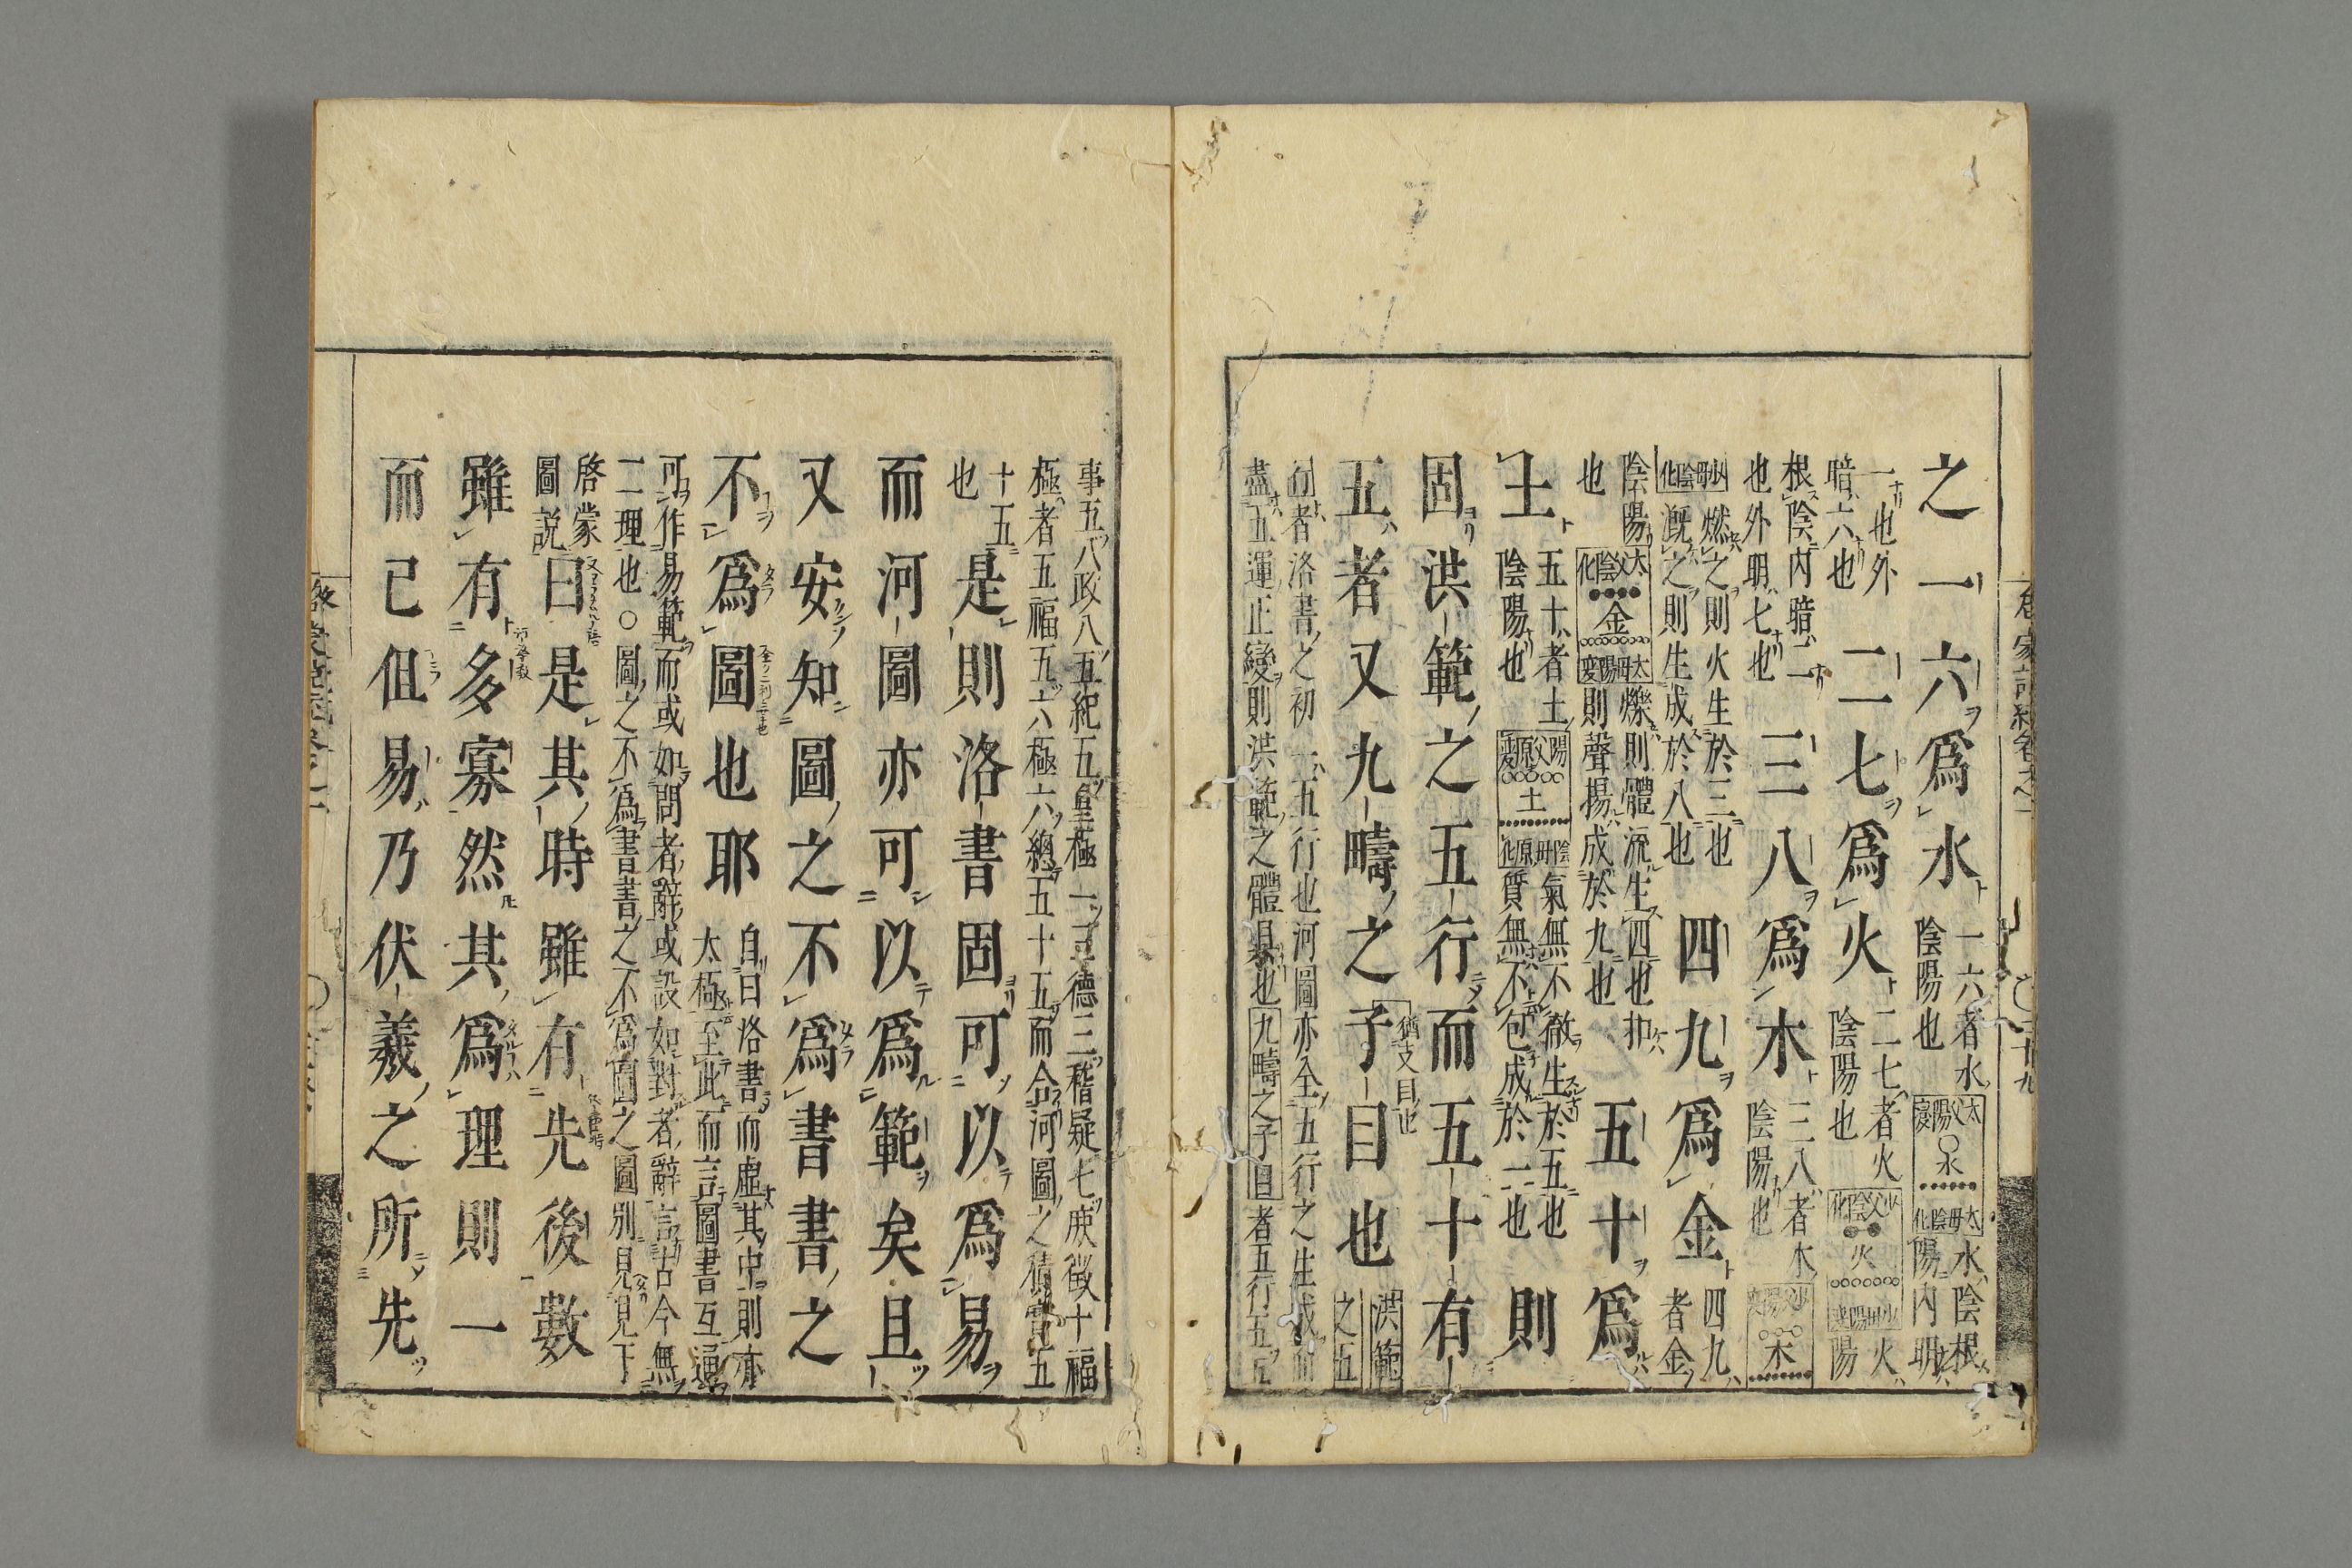 之一六爲水
一六者水
陰陽也
太父陽變
水
太母陰化
水陰根
陽内明
一也外
暗六也
二七爲火
二七者火
陰陽也
少父陰化
火
少母陽變
火
陽
根陰内暗二
也外明七也
三八爲木
三八者木
陰陽也
木
少母陰化
燃之則火生於三也
漑之則生成於八也
四九爲金
四九
者金
陰陽
也
太父陰化
金
太母陽變
爍則體流生四也扣
則聲揚成於九也
五十爲
土
五十者土
陰陽也
陽父原變
土
陰母原化
氣無不徹生於五也
質無不包成於二也
則
固洪範之五行而五十有
五者又九疇之子目也
猶支目也
洪範
之五
行者洛書之初一五行也河圖亦全五行之生成而
盡五運正變則洪範之體具也九疇之子目者五行五五
事五八政八五紀五皇極一三德三稽疑七庶徵十福
極者五福五六極六總五十五而合河圖之積實五
十五
也
是則洛書固可以爲易
而河圖亦可以爲範矣且
又安知圖之不爲書書之
不爲圖也耶
自曰洛書而虛其中則亦
太極至此而言圖書互通
可作易範而或如問者辭或設如對者辭言古今無
二理也○圖之不爲書書之不爲圖之圖別見見下
啓蒙
圖説
曰是其時雖有先後數
雖有多寡然其爲理則一
而已但易乃伏羲之所先